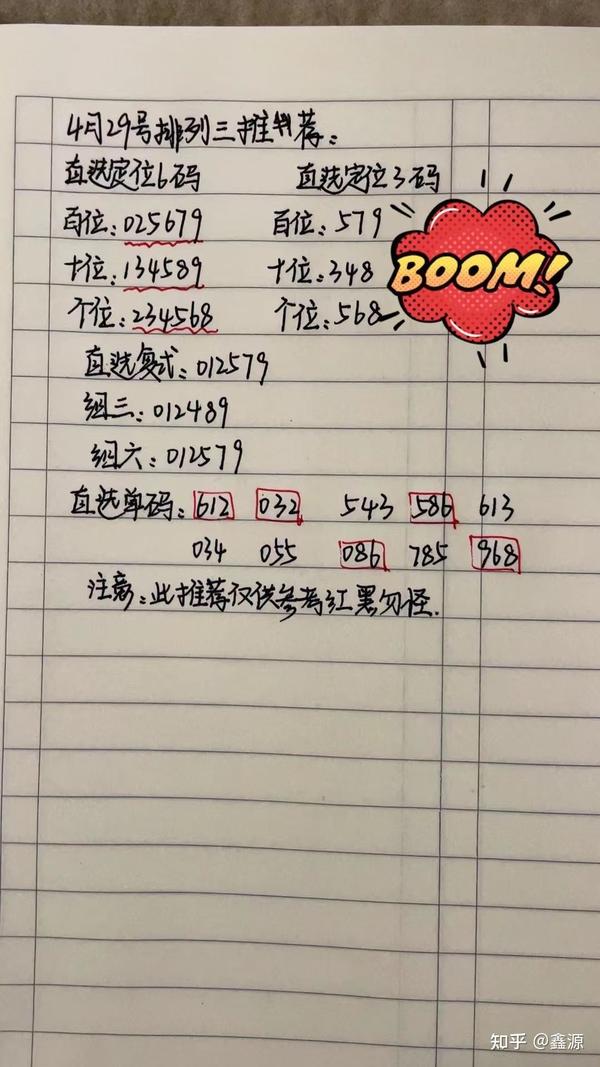 4月29号排列三推荐:
直选定位6码 直选定位3码
百位:025679 百位:579
十位:134589 十位:348
个位:234568 个位:568
BOOM!
直选复式:012579
组三:012489
组六:012579
直选单码:612 032 543 586 613
034 055 086 785 968
注意:此推荐仅供参考红黑勿怪.
知乎 @鑫源